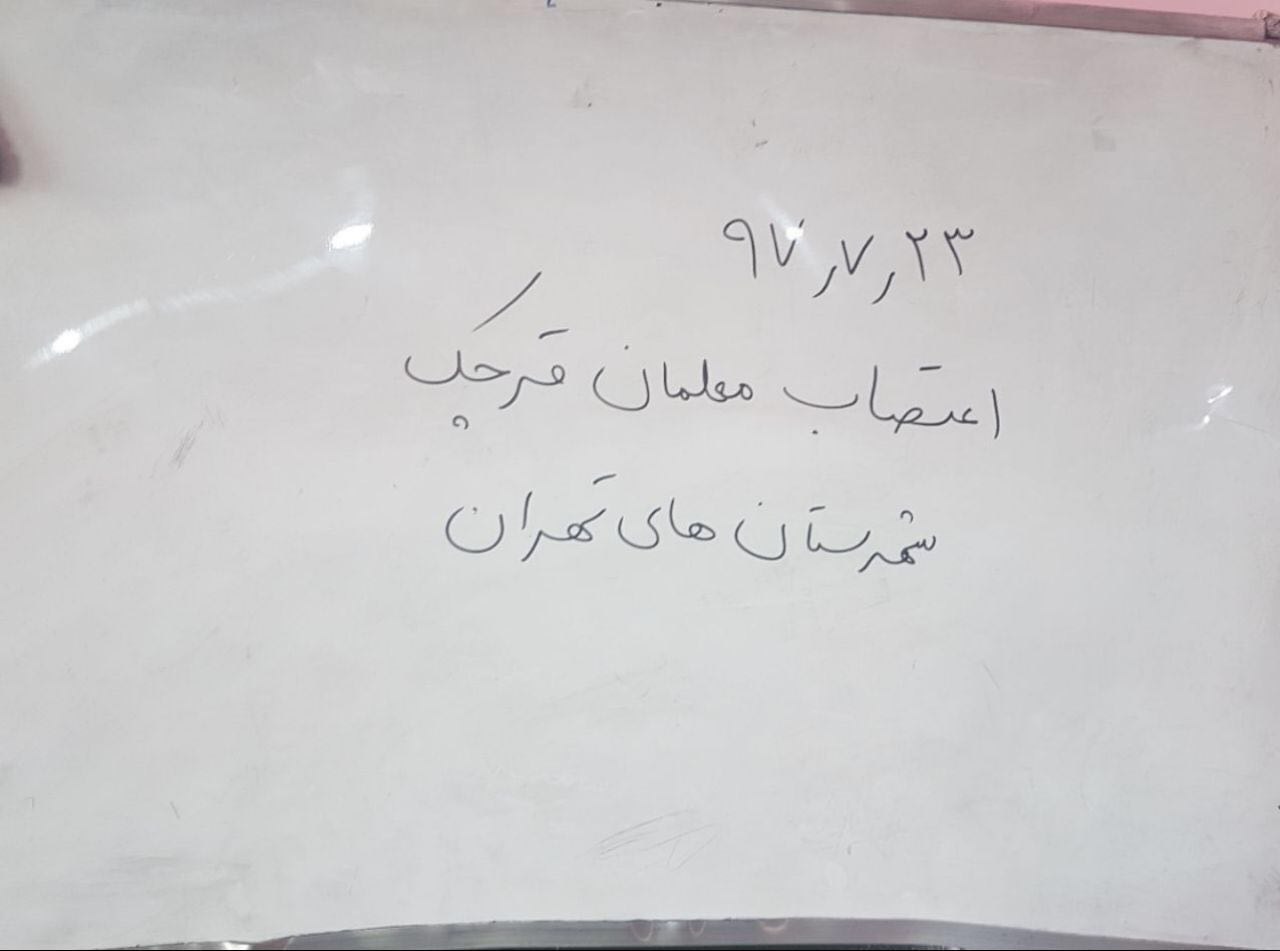 ۹۷٫۷٫۲۳
اعتصاب معلمان قرچک
شهرستان های تهران